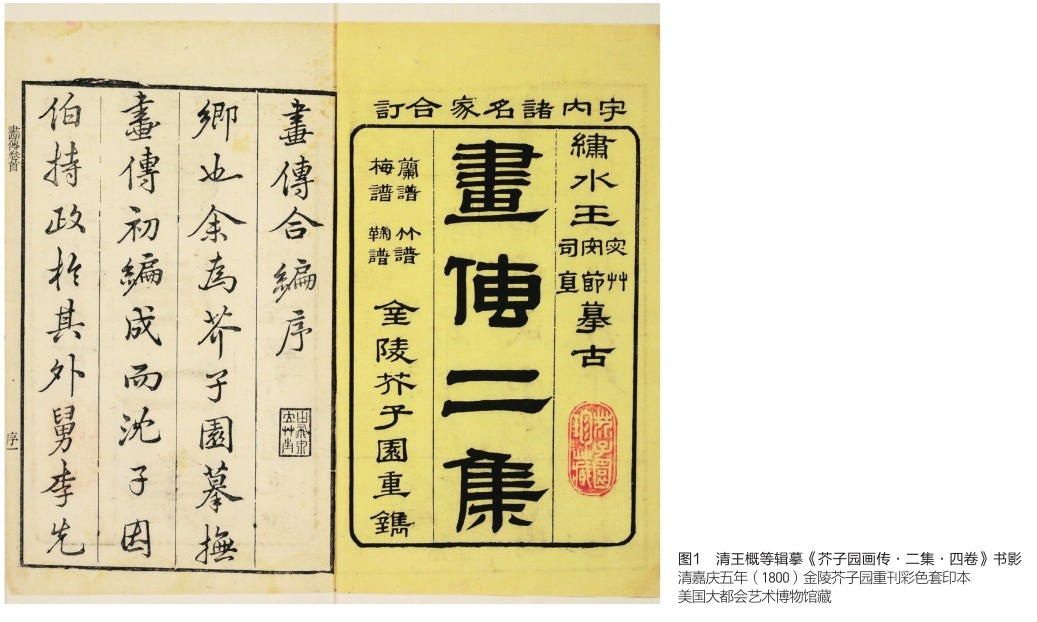 宇内諸名家合訂
繡水王宓艸安節司直摹古
芥子園珍藏
畫傳二集
蘭譜 竹譜
梅譜 鞠譜
金陵芥子園重鐫
畫傳合編序
鄉也余為芥子園摹撫
畫傳初編成而沈子因
伯持政於其外舅李先
畫傳卷首
序一
图1 清王概等辑摹《芥子园画传·二集·四卷》书影
清嘉庆五年（1800）金陵芥子园重刊彩色套印本
美国大都会艺术博物馆藏